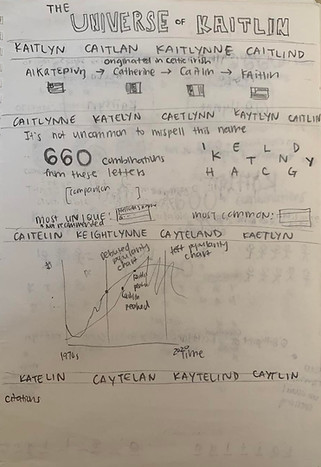 THE
UNIVERSE OF KAITLIN
KAITLYN CAITLAN KAITLYNNE CAITLIND
originated in celtic irish
Αικατερίνη → Catherine → Caitlin → Kaitlin
CAITLYNNE KATELYN CAETLYNN KAYTLYN CAITLIN
It's not uncommon to mispell this name
660 combinations
from these letters
I K E L D Y
T N
H A C G
[comparison]
most unique:
* not recommended
most common:
CAITELIN KEIGHTLYNNE CAYTELAND KAETLYN
detailed popularity chart
test popularity chart
peak
reached
1970s
2020
Time
KATELIN CAYTELAN KAYTELIND CAYTLIN
citations